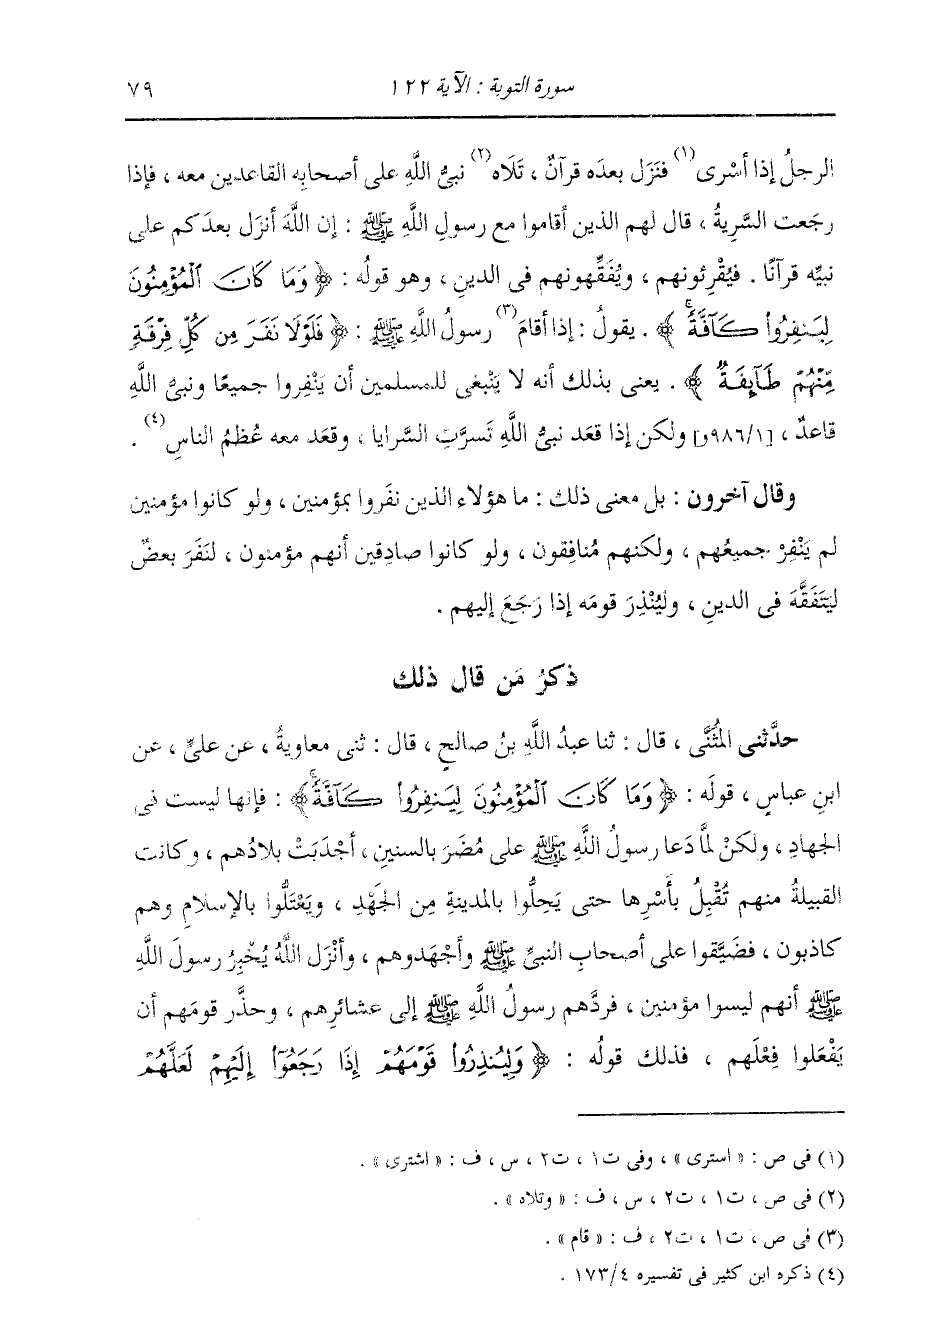 سورة التوبة : الآية ١٢٢ ٧٩
الرجلُ إذا أسْرى(١) فنَزَل بعدَه قرآنٌ ، تَلَاه(٢) نبىُّ اللَّهِ على أصحابِه القاعدِين معه ، فإذا
رجَعت السَّرِيةُ ، قال لهم الذين أقاموا مع رسولِ اللَّهِ ﷺ : إن اللَّهَ أنزَل بعدَكم على
نبيِّه قرآنًا . فيُقْرِئونهم ، ويُفَقِّهونهم فى الدينِ ، وهو قولُه : ﴿ وَمَا كَانَ ٱلْمُؤْمِنُونَ
لِيَنفِرُوا۟ كَآفَّةً ﴾ . يقولُ : إذا أقامَ(٣) رسولُ اللَّهِ ﷺ : ﴿ فَلَوْلَا نَفَرَ مِن كُلِّ فِرْقَةٍ
مِّنْهُمْ طَآئِفَةٌ ﴾ . يعنى بذلك أنه لا يَنْبغِى للمسلمين أن يَنْفِروا جميعًا ونبىُّ اللَّهِ
قاعدٌ ، [٩٨٦/١و] ولكن إذا قعَد نبىُّ اللَّهِ تَسرَّتِ السَّرايا ، وقعَد معه عُظْمُ الناسِ(٤) .
وقال آخرون : بل معنى ذلك : ما هؤلاء الذين نفَروا بمؤمنين ، ولو كانوا مؤمنين
لم يَنْفِرْ جميعُهم ، ولكنهم مُنافِقون ، ولو كانوا صادِقين أنهم مؤمنون ، لنَفَرَ بعضٌ
ليَتَفَقَّهَ فى الدينِ ، وليُنْذِرَ قومَه إذا رَجَعَ إليهم .
ذكرُ مَن قال ذلك
حدَّثنى المُثَنَّى ، قال : ثنا عبدُ اللَّهِ بنُ صالحٍ ، قال : ثنى معاويةُ ، عن علىٍّ ، عن
ابنِ عباسٍ ، قولَه : ﴿ وَمَا كَانَ ٱلْمُؤْمِنُونَ لِيَنفِرُوا۟ كَآفَّةً ﴾ : فإنها ليست فى
الجهادِ ، ولكنْ لمَّا دَعا رسولُ اللَّهِ ﷺ على مُضَرَ بالسنينِ ، أجْدَبَتْ بلادُهم ، وكانت
القبيلةُ منهم تُقْبِلُ بأَسْرِها حتى يَحِلُّوا بالمدينةِ مِن الجَهْدِ ، ويَعْتَلُّوا بالإسلامِ وهم
كاذبون ، فضَيَّقوا على أصحابِ النبىِّ ﷺ وأجْهَدوهم ، وأنْزَل اللَّهُ يُخْبِرُ رسولَ اللَّهِ
ﷺ أنهم ليسوا مؤمنين ، فردَّهم رسولُ اللَّهِ ﷺ إلى عشائرِهم ، وحذَّر قومَهم أن
يَفْعَلوا فِعْلَهم ، فذلك قولُه : ﴿ وَلِيُنذِرُوا۟ قَوْمَهُمْ إِذَا رَجَعُوٓا۟ إِلَيْهِمْ لَعَلَّهُمْ
(١) فى ص : « استرى » ، وفى ت١ ، ت٢ ، س ، ف : « اشترى » .
(٢) فى ص ، ت١ ، ت٢ ، س ، ف : « وتلاه » .
(٣) فى ص ، ت١ ، ت٢ ، ف : « قام » .
(٤) ذكره ابن كثير فى تفسيره ١٧٣/٤ .